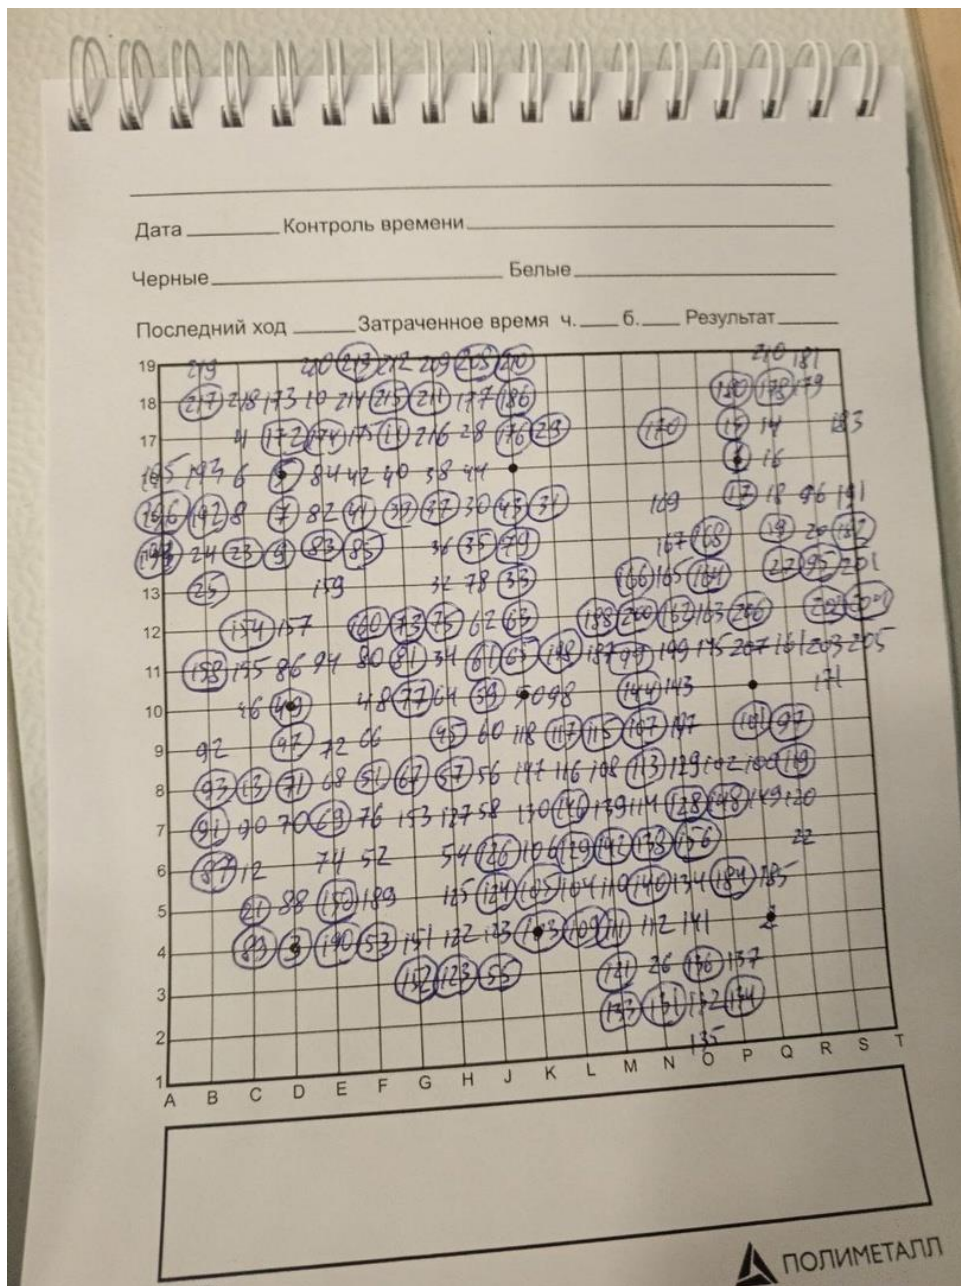 Дата Контроль времени
Черные Белые
Последний ход Затраченное время ч. б. Результат
210 181
19 219 213 212 209 210
18 217 218 173 10 214 215 211 177 186 180 178 179
17 4 172 174 175 11 216 28 176 29 170 15 14 183
16 193 6 5 84 42 40 38 44 16
192 8 7 82 41 39 37 30 43 31 169 17 18 96 191
24 23 9 83 85 36 35 79 167 168 19 20
13 25 159 32 78 33 166 165 164 27 95 201
12 154 157 160 73 75 62 63 188 200 163 206
11 158 155 86 94 80 81 34 61 65 198 187 99 199 145 207 161 203 205
10 46 49 48 77 64 59 50 98 144 143 171
9 92 47 72 66 45 60 118 117 115 107 101 97
8 93 13 71 68 51 67 57 56 147 116 108 113 129 102 100 119
7 91 90 70 69 76 153 127 58 130 140 139 114 128 148 149 120
6 87 12 74 52 54 126 106 142 138 156 22
5 21 88 150 189 125 124 105 104 110 146 134 184 185
4 89 3 190 53 151 122 123 103 109 111 112 141 2
3 152 123 55 121 26 136 137
2 133 131 132 134
1 135
A B C D E F G H J K L M N O P Q R S T
ПОЛИМЕТАЛЛ